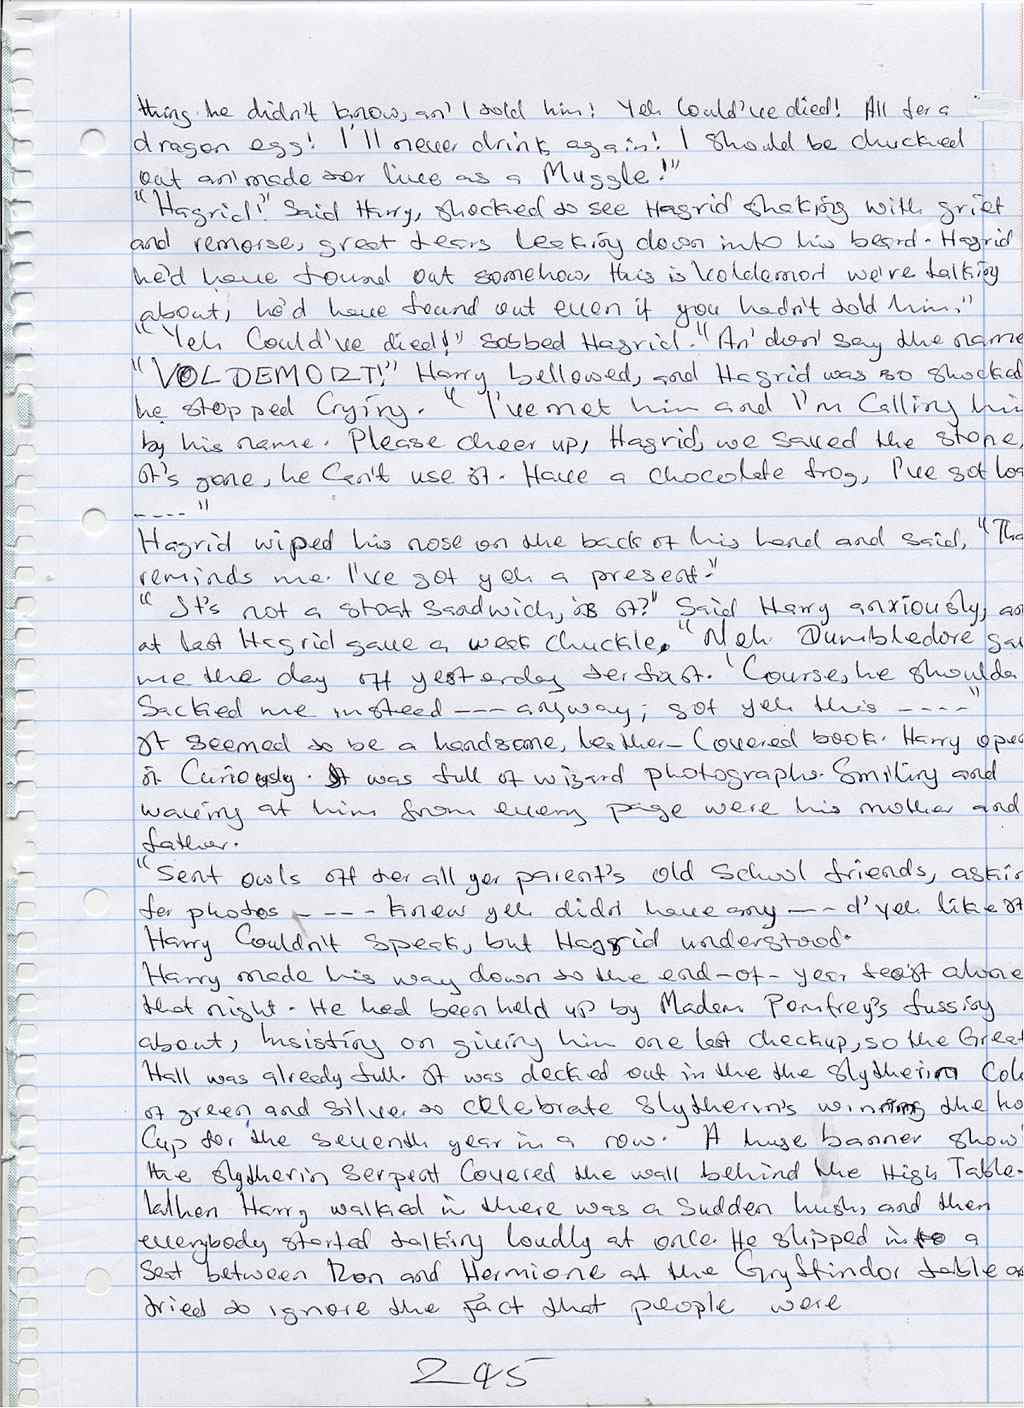 thing he didn't know, an' I told him! Yeh Could've died! All fer a
dragon egg! I'll never drink again! I should be chucked
out an' made ter live as a Muggle!"
"Hagrid!" Said Harry, shocked to see Hagrid shaking with grief
and remorse, great tears leaking down into his beard. Hagrid
he'd have found out somehow, this is Voldemort we're talking
about, he'd have found out even if you hadn't told him."
"Yeh Could've died!" sobbed Hagrid. "An' don' say the name
"VOLDEMORT!" Harry bellowed, and Hagrid was so shocked
he stopped Crying. "I've met him and I'm Calling hi
by his name. Please cheer up, Hagrid, we saved the stone,
it's gone, he Can't use it. Have a Chocolate frog, I've got lo
---- "
Hagrid wiped his nose on the back of his hand and said, "Tha
reminds me. I've got yeh a present."
"It's not a stoat Sandwich, is it?" Said Harry anxiously, an
at last Hagrid gave a weak Chuckle. "Neh. Dumbledore ga
me the day off yesterday ter fix it. 'Course, he shoulda
Sacked me instead --- anyway, got yeh this ----"
it seemed to be a handsome, leather-Covered book. Harry ope
it Curiously. It was full of wizard photographs. Smiling and
waving at him from every page were his mother and
father.
"Sent owls off ter all yer parent's old School friends, askin
fer photos ---- knew yeh didn' have any --- d'yeh like it
Harry Couldn't Speak, but Hagrid understood.
Harry made his way down to the end-of-year feast alone
that night. He had been held up by Madam Pomfrey's fussing
about, insisting on giving him one last checkup, so the Great
Hall was already full. it was decked out in the the Slytherin Col
of green and silver to Celebrate Slytherin's winning the ho
Cup for the seventh year in a row. A huge banner show
the Slytherin Serpent Covered the wall behind the High Table.
When Harry walked in there was a Sudden hush, and then
everybody started talking loudly at once. He slipped into a
Seat between Ron and Hermione at the Gryffindor table a
tried to ignore the fact that people were
295